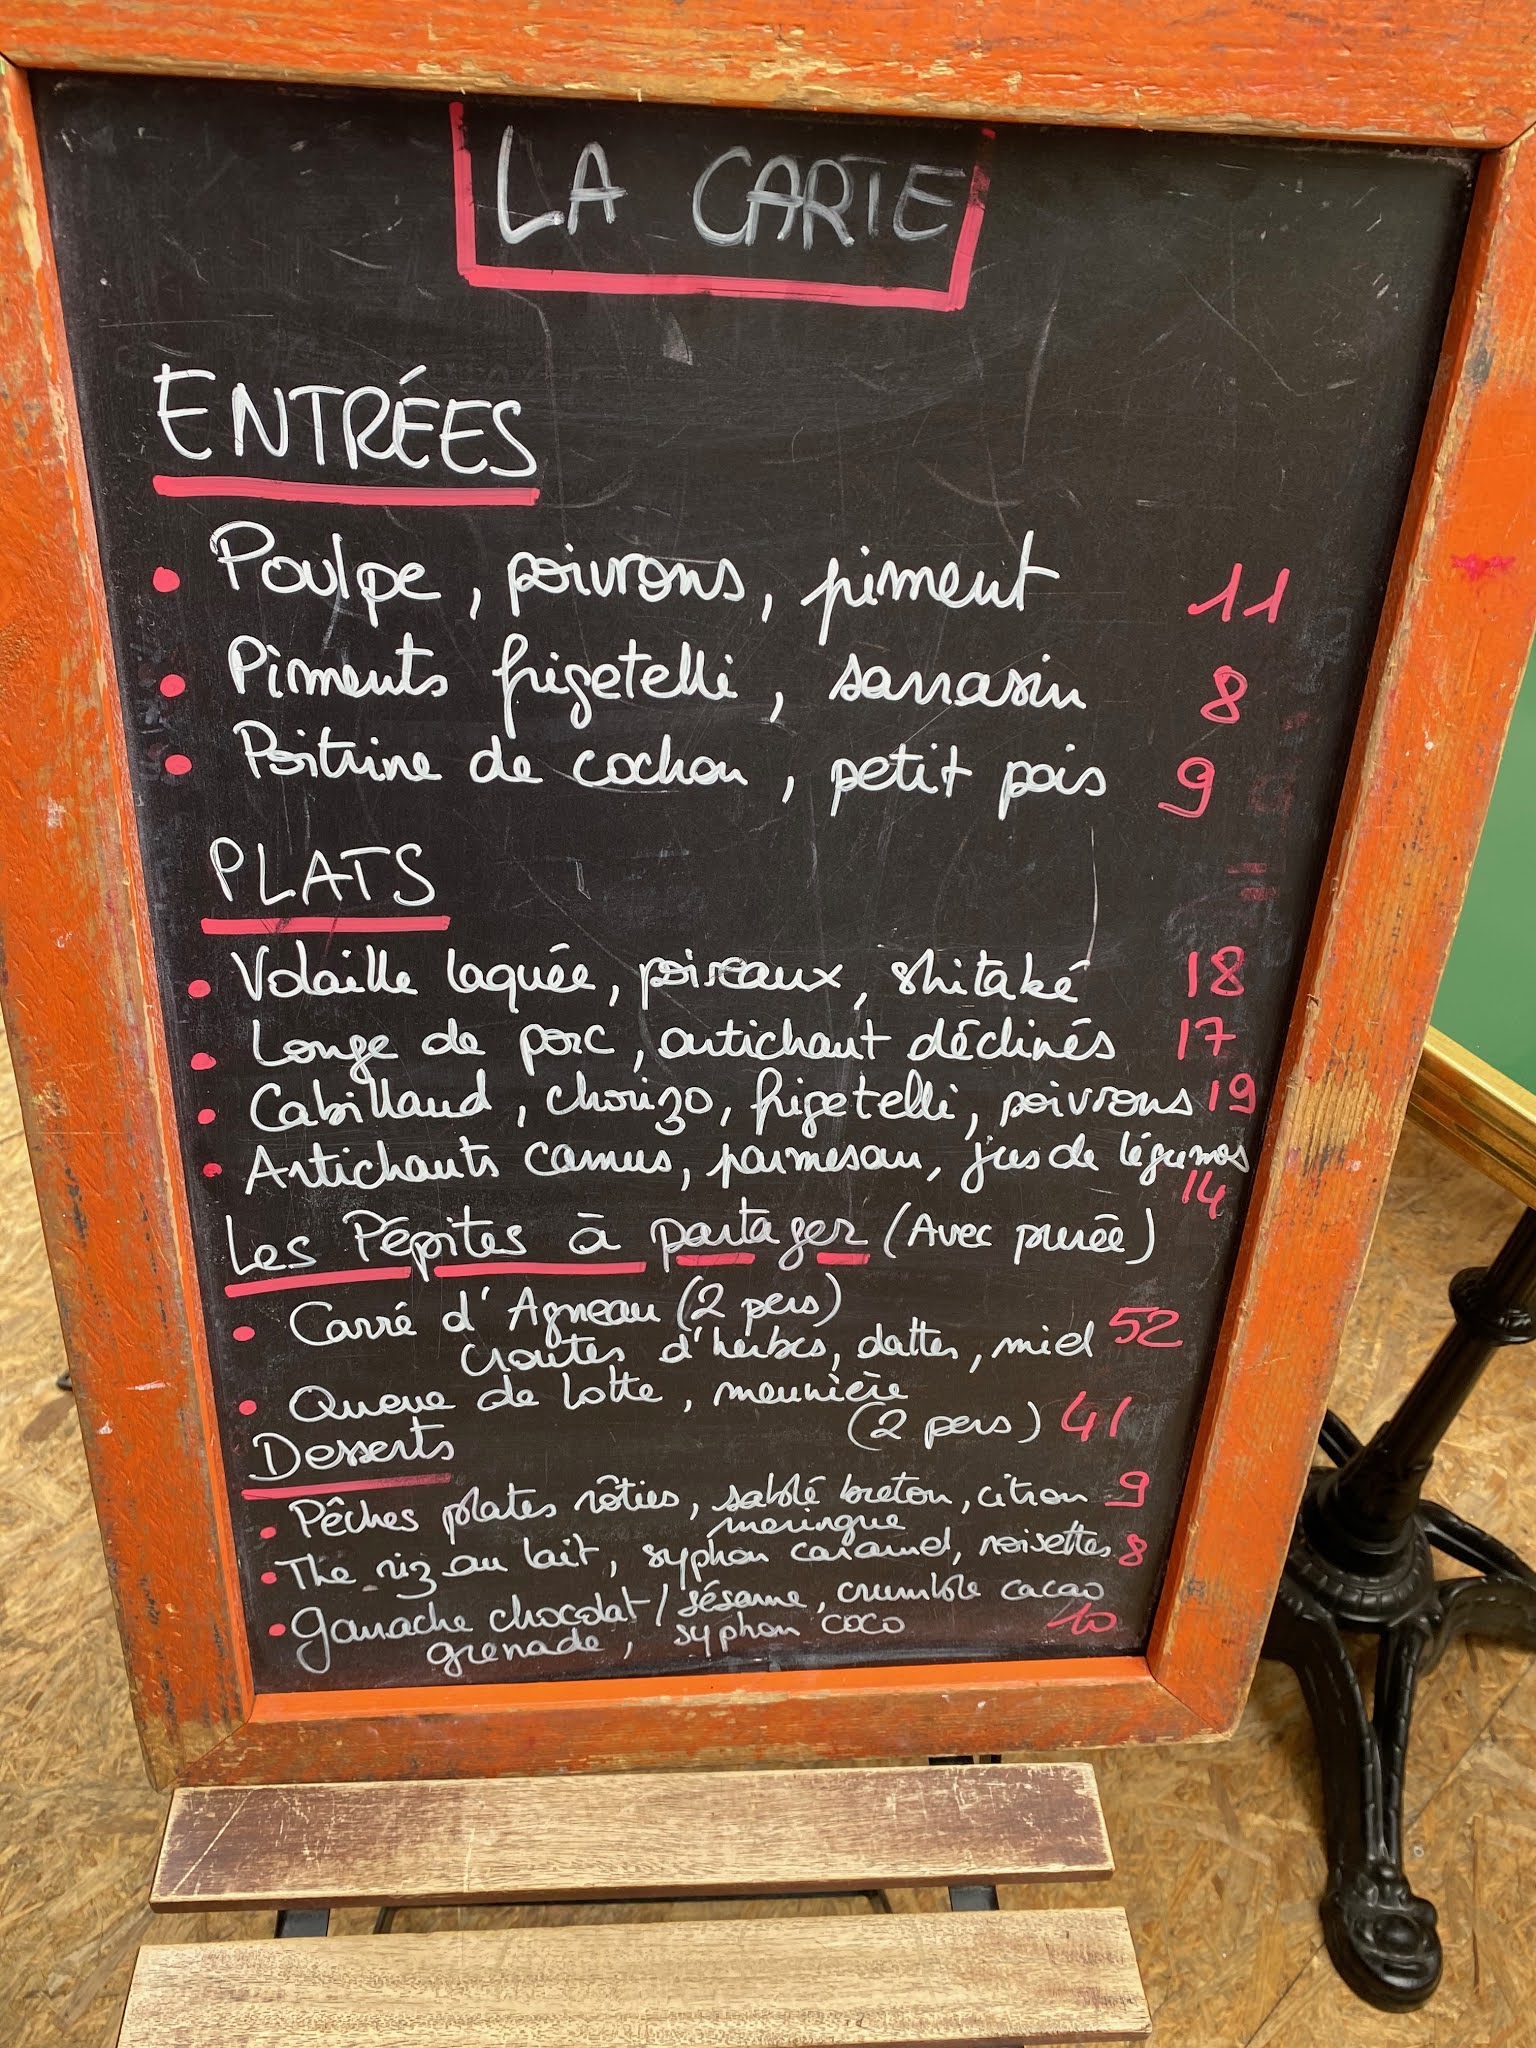 LA CARTE
ENTRÉES
Poulpe, poivrons, piment 11
Piments frigetelli, sarrasin 8
Poitrine de cochon, petit pois 9
PLATS
Volaille laquée, poireaux, shitaké 18
Longe de porc, artichaut déclinés 17
Cabillaud, chorizo, frigetelli, poivrons 19
Artichauts camus, parmesan, jus de légumes
14
Les Pépites à partager (Avec purée)
Carré d'Agneau (2 pers)
croutes d'herbes, dattes, miel 52
Queue de lotte, meunière
(2 pers) 41
Desserts
Pêches plates rôties, sablé breton, citron 9
meringue
The riz au lait, syphon caramel, noisettes 8
Ganache chocolat / sésame, crumble cacao
grenade, syphon coco 10